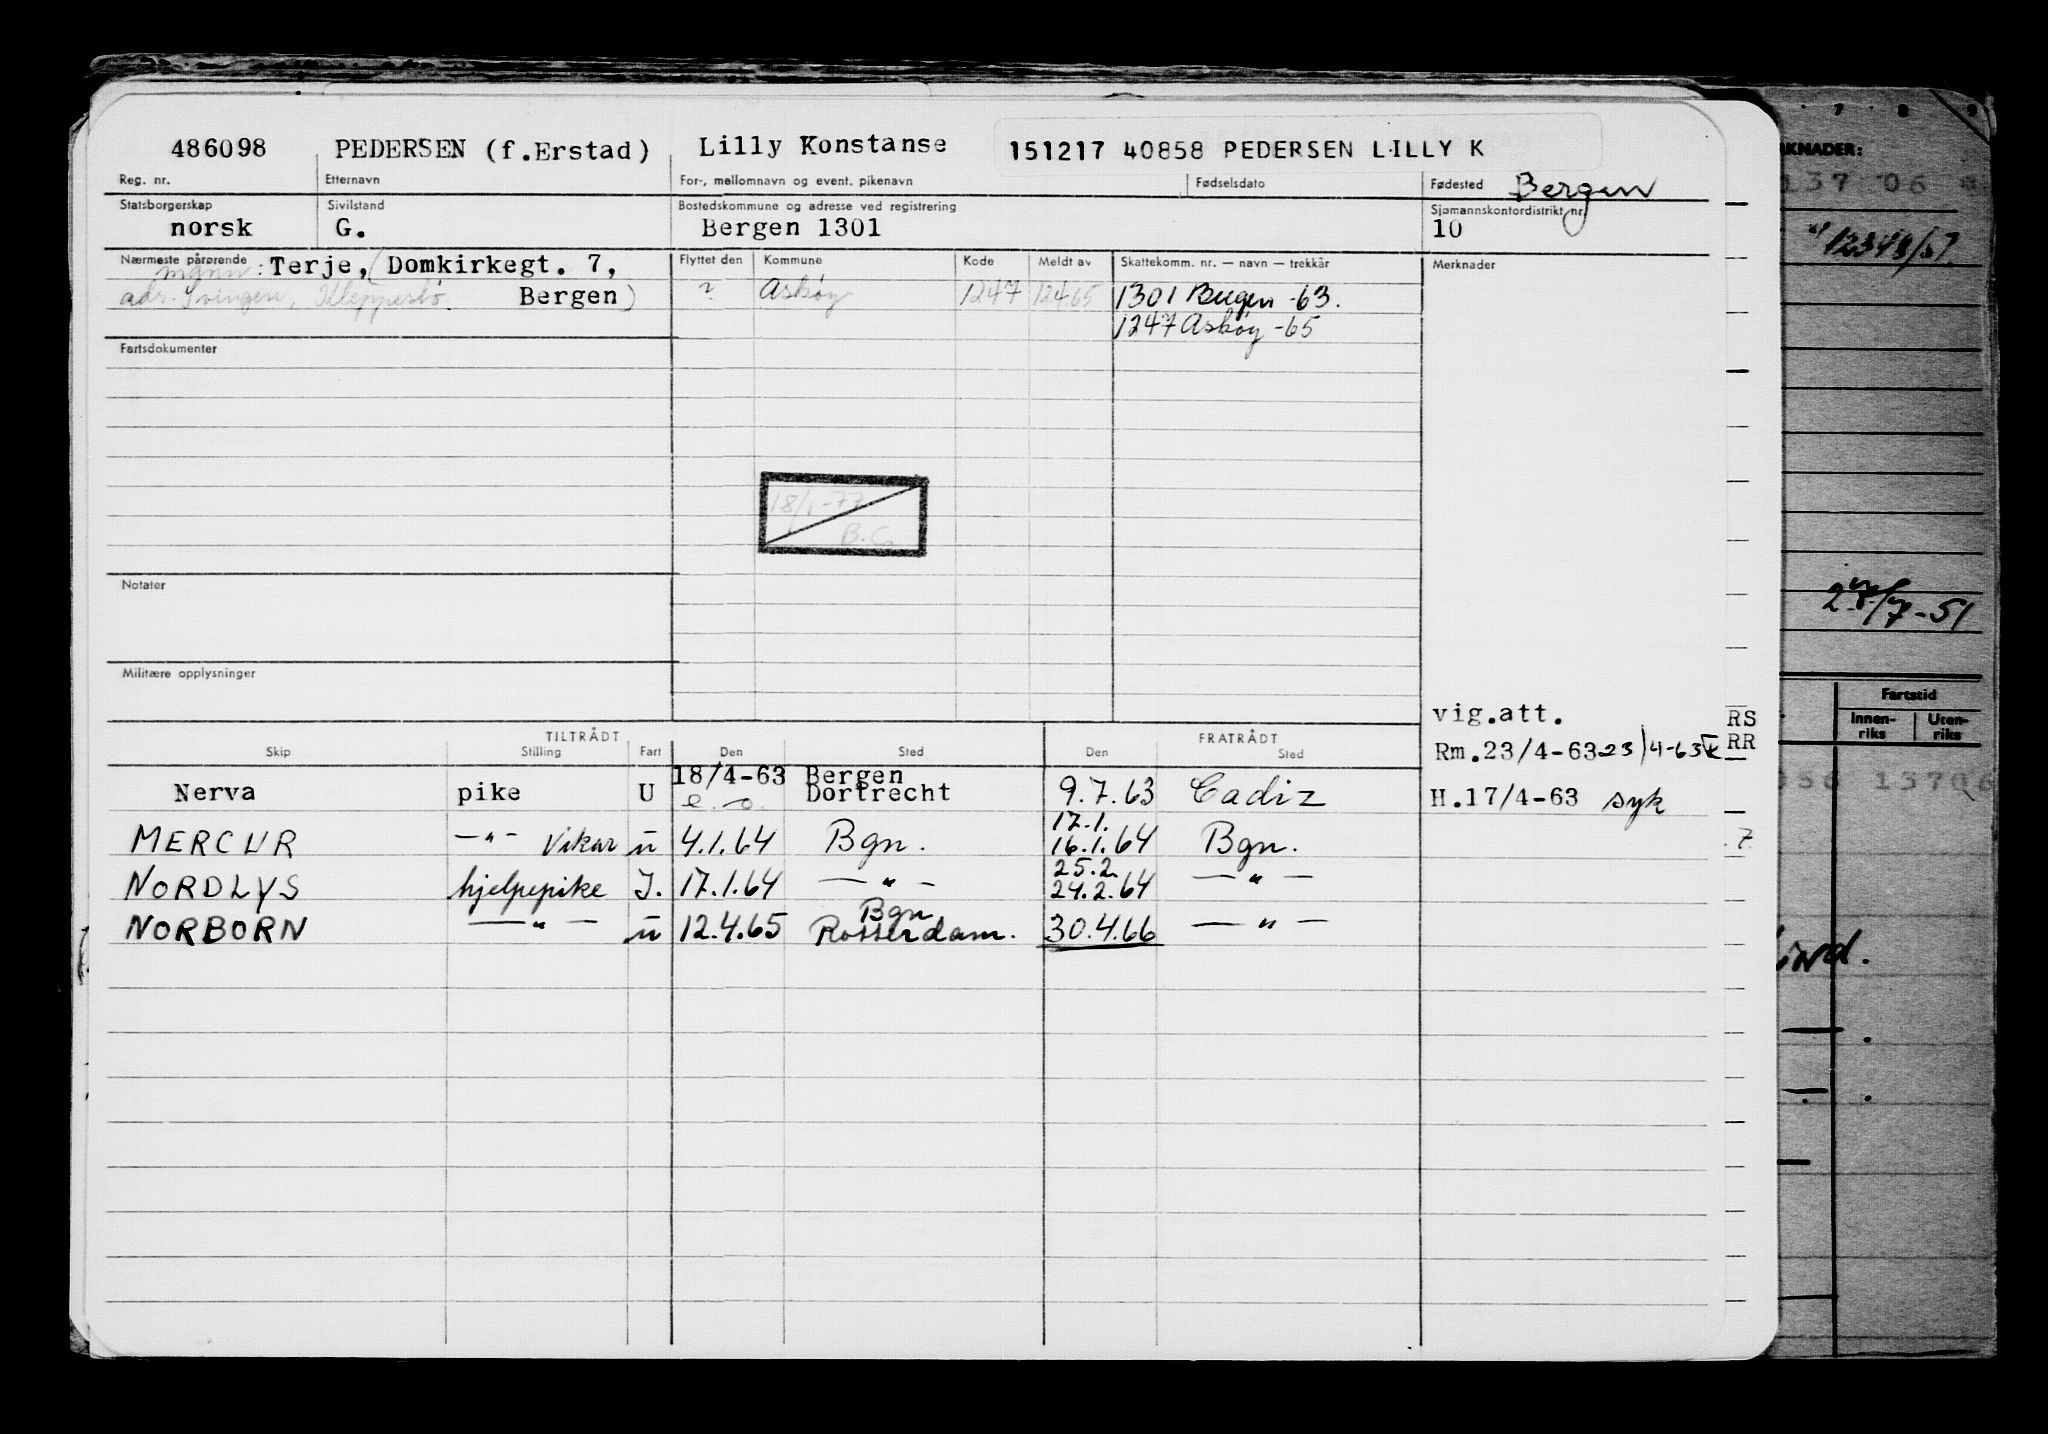 486098 PEDERSEN (f.Erstad) Lilly Konstanse 151217 40858 PEDERSEN LILLY K
Reg. nr. Etternavn For-, mellomnavn og event. pikenavn Fødselsdato Fødested Bergen
Statsborgerskap Sivilstand Bostedskommune og adresse ved registrering Sjømannskontordistrikt nr.
norsk G. Bergen 1301 10
Nærmeste pårørende mann: Terje, (Domkirkegt. 7, Flyttet den Kommune Kode Meldt av Skattekomm. nr. — navn — trekkår Merknader
adr. Svingen, Kleppestø. Bergen) ? Askøy 1247 12465 1301 Bergen -63.
1247 Askøy -65
Fartsdokumenter
18/1-77
B.C.
Notater
Militære opplysninger
vig.att.
TILTRÅDT FRATRÅDT
Skip Stilling Fart Den Sted Den Sted Rm.23/4-63 23/4-63
18/4-63 Bergen
Nerva pike U e.o. Dortrecht 9.7.63 Cadiz H.17/4-63 syk
17.1.
MERCUR —"— Vikar u 4.1.64 Bgn. 16.1.64 Bgn.
25.2.
NORDLYS hjelpepike I. 17.1.64 —"— 24.2.64 —"—
Bgn
NORBORN —"— u 12.4.65 Rotterdam. 30.4.66 —"—
RS
RR
7
7 8 9
KNADER:
137 06
12348/57
28/7-51
Fartstid
Innen-
riks
Uten-
riks
13706